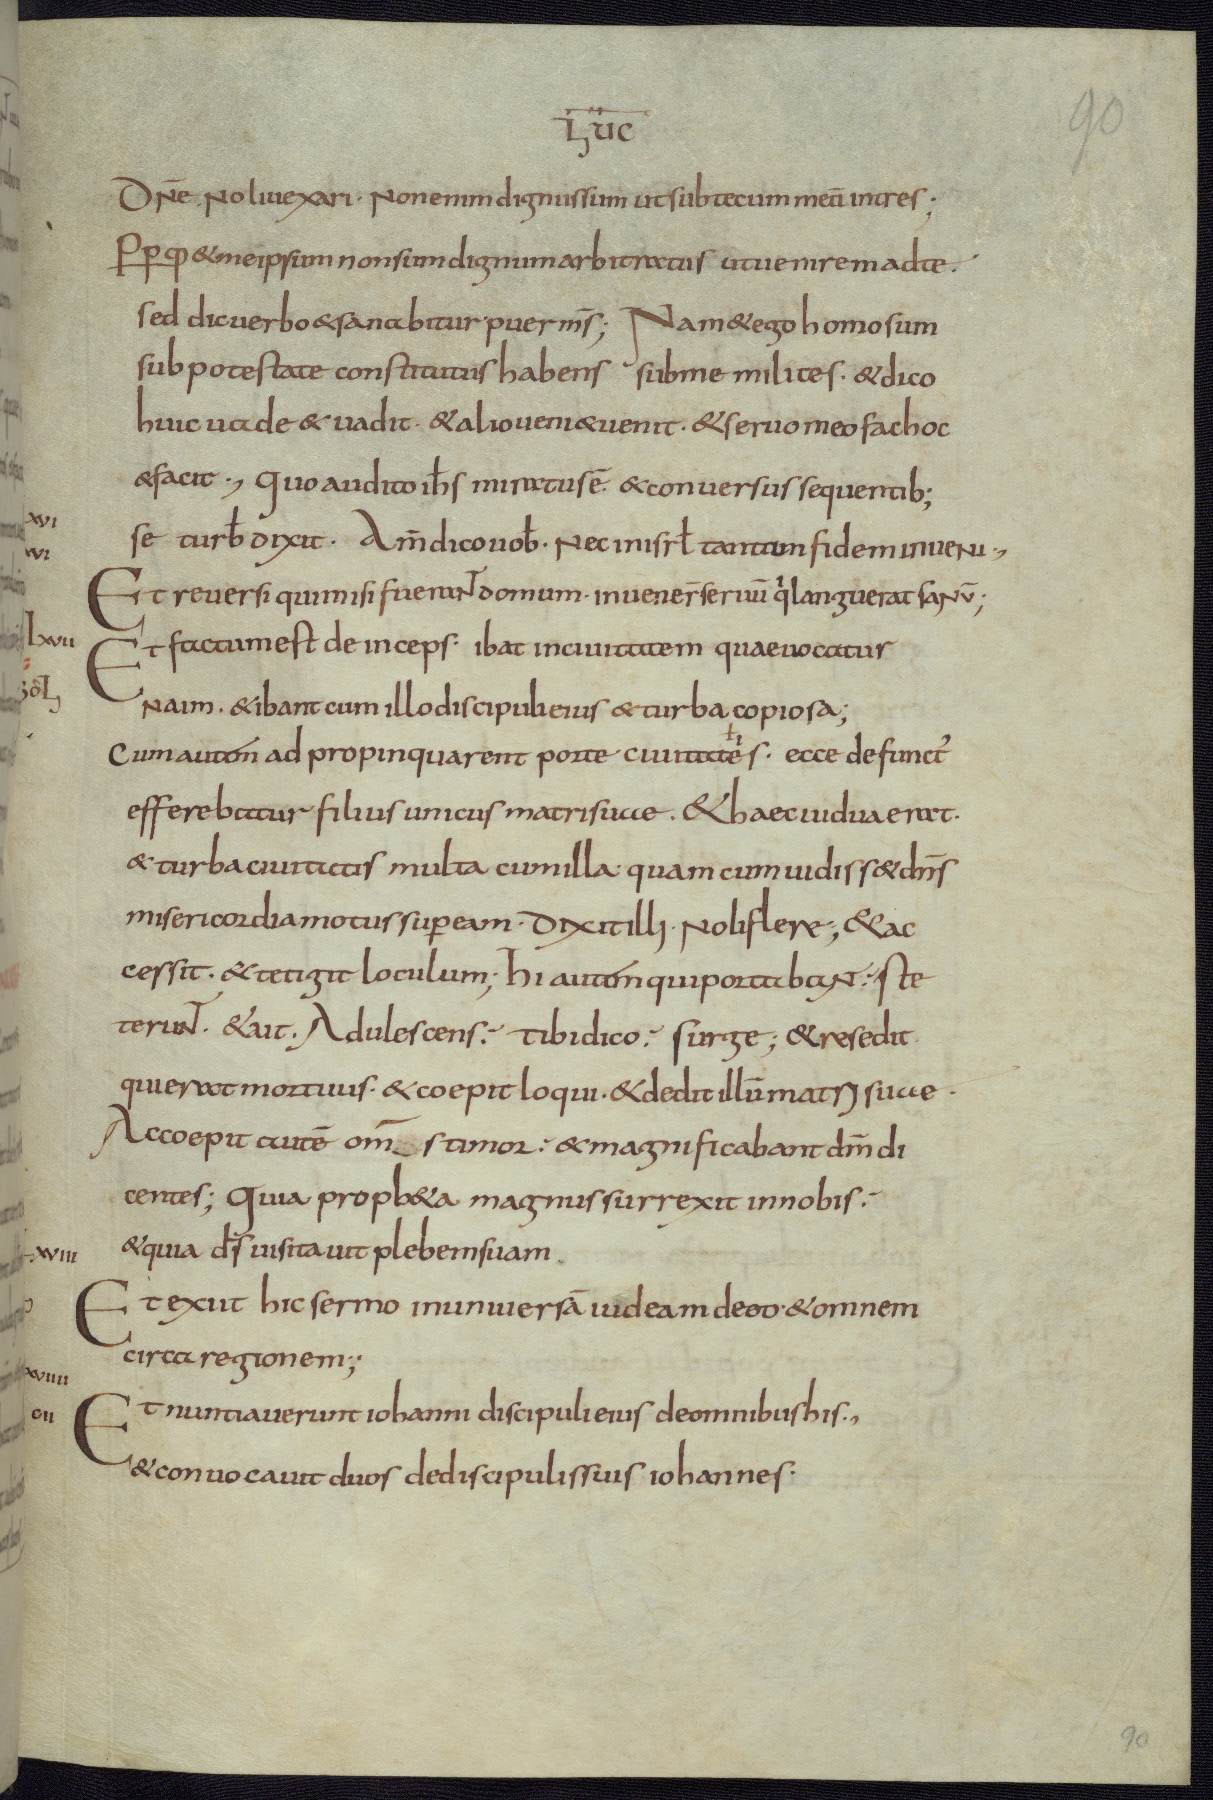 LUC
90
Dn̄e. Noli uexari. Non enim dignus sum ut sub tecum meū intres;
Pp̱ qđ & me ipsum non sum dignum arbitratus ut uenirem ad te.
sed dic uerbo & sanabitur puer m̄s; Nam & ego homo sum
sub potestate constitutus habens sub me milites. & dico
huic uade & uadit. & alio ueni & uenit. & seruo meo fac hoc
& facit., Quo audito ih̄s miratus ē. & conuersus sequentib;
xvi
se turb̄ dixit. Am̄ dico uob̄. Nec in isrl̄ tantam fidem inueni.,
vi
Et reuersi qui misi fuerant̄ domum. inuener̄ seruū q langúerat sanū;
Lxvii
Et factum est deinceps. ibat in ciuitatem quae uocatur
Naim. & ibant cum illo discipuli eius & turba copiosa;
Cum autem ad propinquarent porte ciuitates. ecce defunct̓
ł i
efferebatur filius unicus matri suae. & haec uidua erat.
& turba ciuitatis multa cum illa quam cum uidiss& dn̄s
misericordia motus super eam. Dixit illi. Noli flere; & ac
cessit. & tetigit loculum; hi autem qui portabant. ste
terunt̄. & ait. Adulescens. tibi dico. surge; & resedit
qui erat mortuus. & coepit loqui. & dedit illū matri suae.
Accoepit autē om̄ s timor. & magnificabant dm̄ di
centes; Quia proph&a magnus surrexit in nobis.
xviii
& quia ds̄ uisitauit plebem suam.
Et exiit hic sermo in uniuersā iudeam de eo. & omnem
circa regionem;
xviiii
Et nuntiauerunt iohanni discipuli eius de omnibus his.,
cii
& conuocauit duos de discipulis suis iohannes.
90